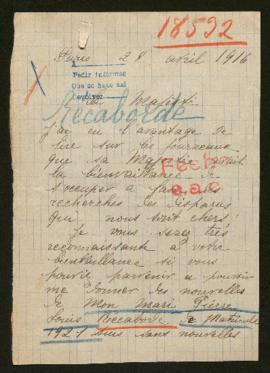 18592
Paris 28 avril 1916
Pedir informes
Majesté
Recaborde
J'ai eu l'avantage de
lire sur les journeaux
que sa Majesté avait
la bienveillance de
s'occuper a faire des
recherches les disparus
qui nous sont chers
Fecha
Je vous serez très
reconnaissante à votre
bienveillance si vous
pouviez parvenir a pouvoir
me donner des nouvelles
de Mon Mari Pierre
Louis Recaborde Matricule
suis sans nouvelles